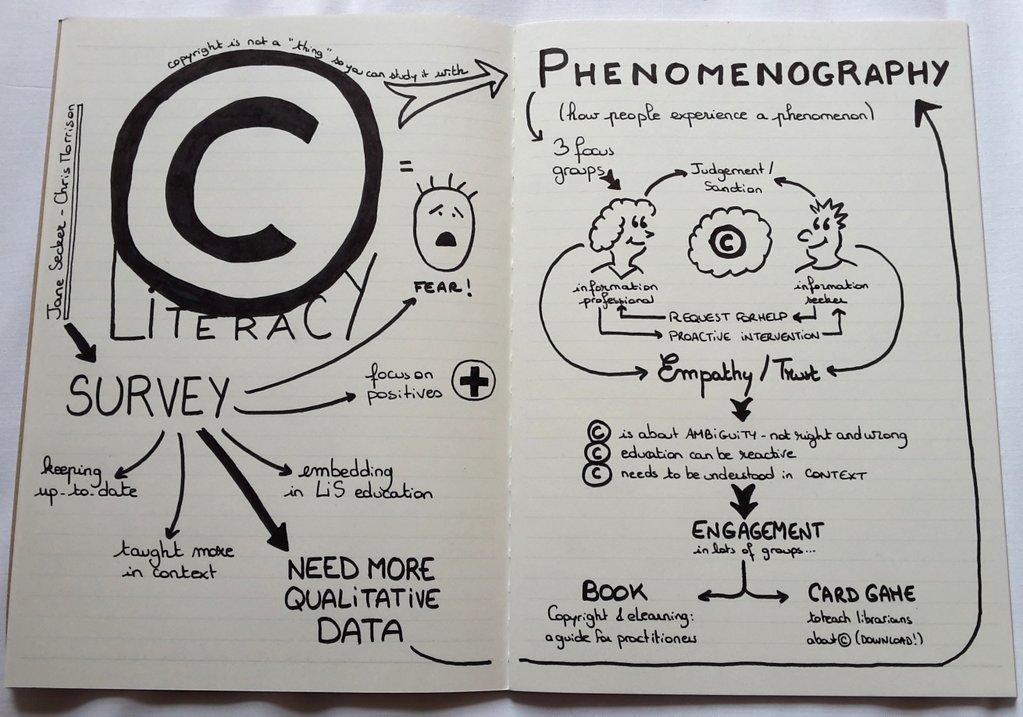 copyright is not a "thing" so you can study it with
Jane Secker - Chris Morrison
©
=
LITERACY
FEAR!
SURVEY
focus on
positives
+
keeping
up-to-date
embedding
in LiS education
taught more
in context
NEED MORE
QUALITATIVE
DATA
PHENOMENOGRAPHY
(how people experience a phenomenon)
3 focus
groups
Judgement/
Sanction
©
information
professional
information
seeker
REQUEST FOR HELP
PROACTIVE INTERVENTION
Empathy / Trust
© is about AMBIGUITY - not right and wrong
© education can be reactive
© needs to be understood in CONTEXT
ENGAGEMENT
in lots of groups...
BOOK
Copyright & elearning:
a guide for practitioners
CARD GAME
to teach librarians
about © (DOWNLOAD!)